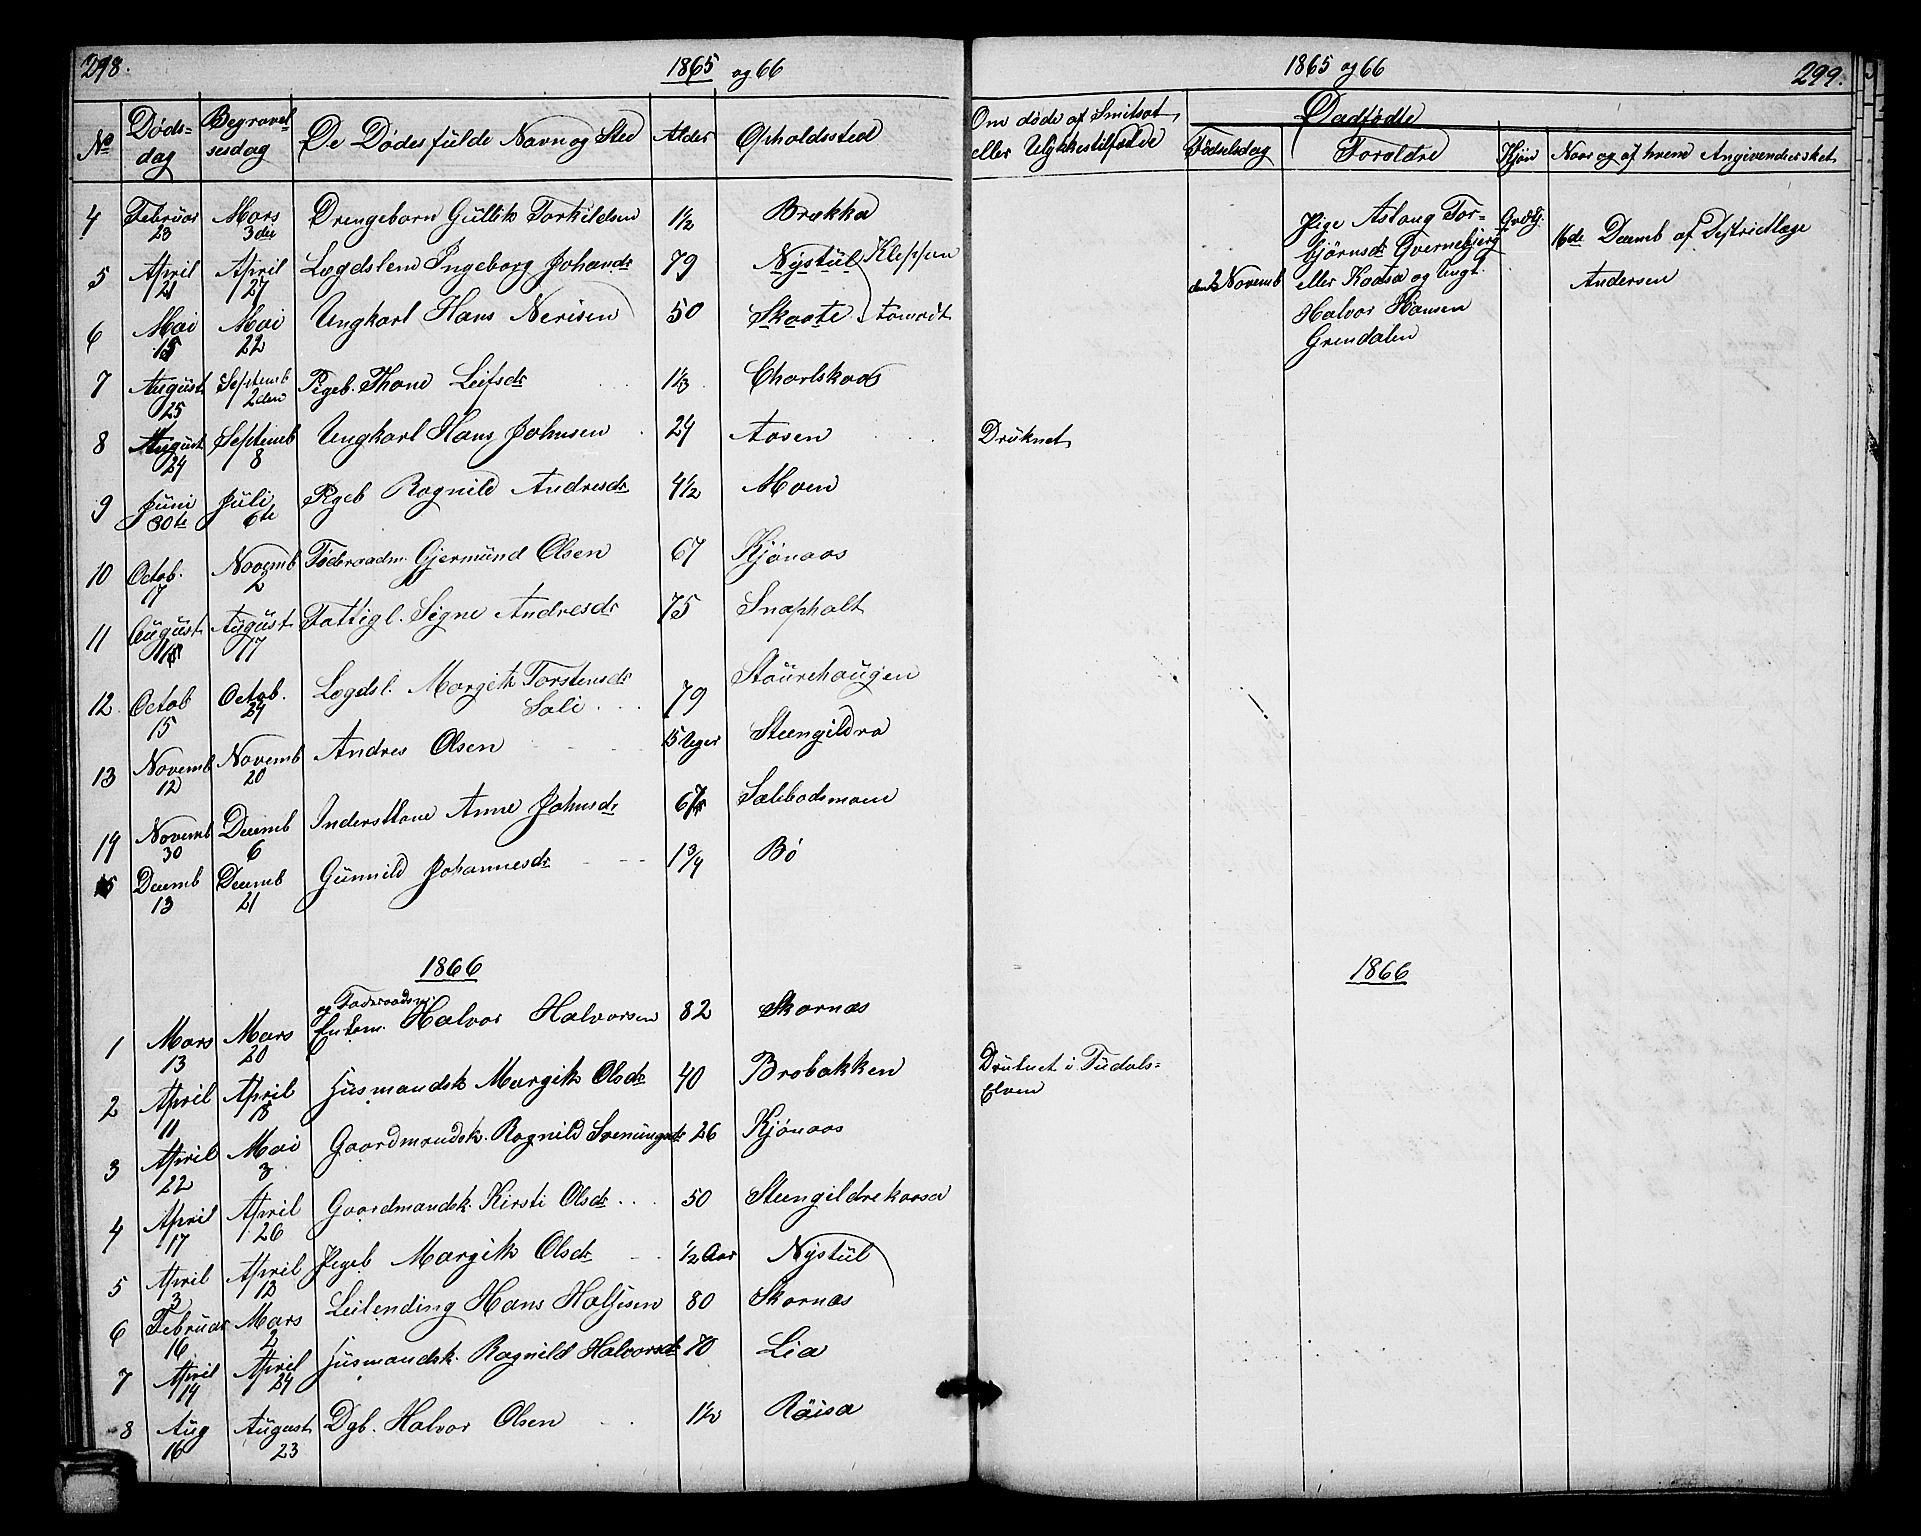 298.
1865 og 66
No Døds-dag Begravelsesdag De Dødes fulde Navn og Sted Alder Opholdssted
4 Februar 23 Mars 3die Drengebarn Gullik Torkildsen 1½ Brække
5 April 21 April 27 Lægdslem Ingeborg Johansdr 79 Nystul Kleppen
6 Mai 15 Mai 22 Ungkarl Hans Nerisen 50 Skaate
7 August 25 Septemb 2den Pigeb. Thone Leifsdr 1⅓
8 August 24 Septemb 8 Ungkarl Hans Johnsen 24 Aasen
9 Juni 30te Juli 6te Pigeb Ragnild Andresdr 4½ Moen
10 Octob. 17 Novemb 2 Føderaadm. Gjermund Olsen 67 Kjønaas
11 August August 17 Fattigl. Signe Andresdr 75 Snapholt
12. Octob 15 Octob. 24 Lægdsl. Margith Torstensdr Sali 79 Staurehaugen
13 Novemb 12 Novemb 20 Andres Olsen 15 Uger Steengildra
14 Novemb 30 Decemb 6 Inderstkone Anne Johnsdr 67 Sælebodsmoen
15 Decemb 13 Decemb 21 Gunnild Johannesdr 1¾ Bø
1866
og Føderaadsm.
1 Mars 13 Mars 20 Enkem. Halvor Halvorsen 82 Skarnæs
2 April 11 April 18 Husmandsk Margith Olsdr 40 Brobakken
3 April 22 Mai 3 Gaardmandsk. Ragnild Svenungsdr 26 Kjønaas
4 April 17 April 26 Gaardmandsk. Kirsti Olsdr 50 Steengildrekaasa
5 April 3 April 12 Pigeb Margith Olsdr ½ Aar Nystul
6 Februar 16 Mars 2 Leilending Hans Halfsen 80 Skarnæs
7 April 14 April 24 Husmandsk. Ragnild Halvorsdr 80 Lia
8 Aug 16 August 23 Dgb. Halvor Olsen 1½ Røisa
1865 og 66
299.
Om døde af Smitsot eller Ulykkestilfælde
Dødfødte
Fødselsdag Foreldre Kjøn Naar og af hvem Angivendes sket
den 2 Novemb
Pige Aslaug Tor-
bjørnsdr Qvernebjerg
eller Kaasa og Ungk.
Halvor Hansen
Grendalen
Qvdkj.
16de Decemb af Distriktlæge
Andersen
Druknet
1866
Druknet i Tudals-
Elven